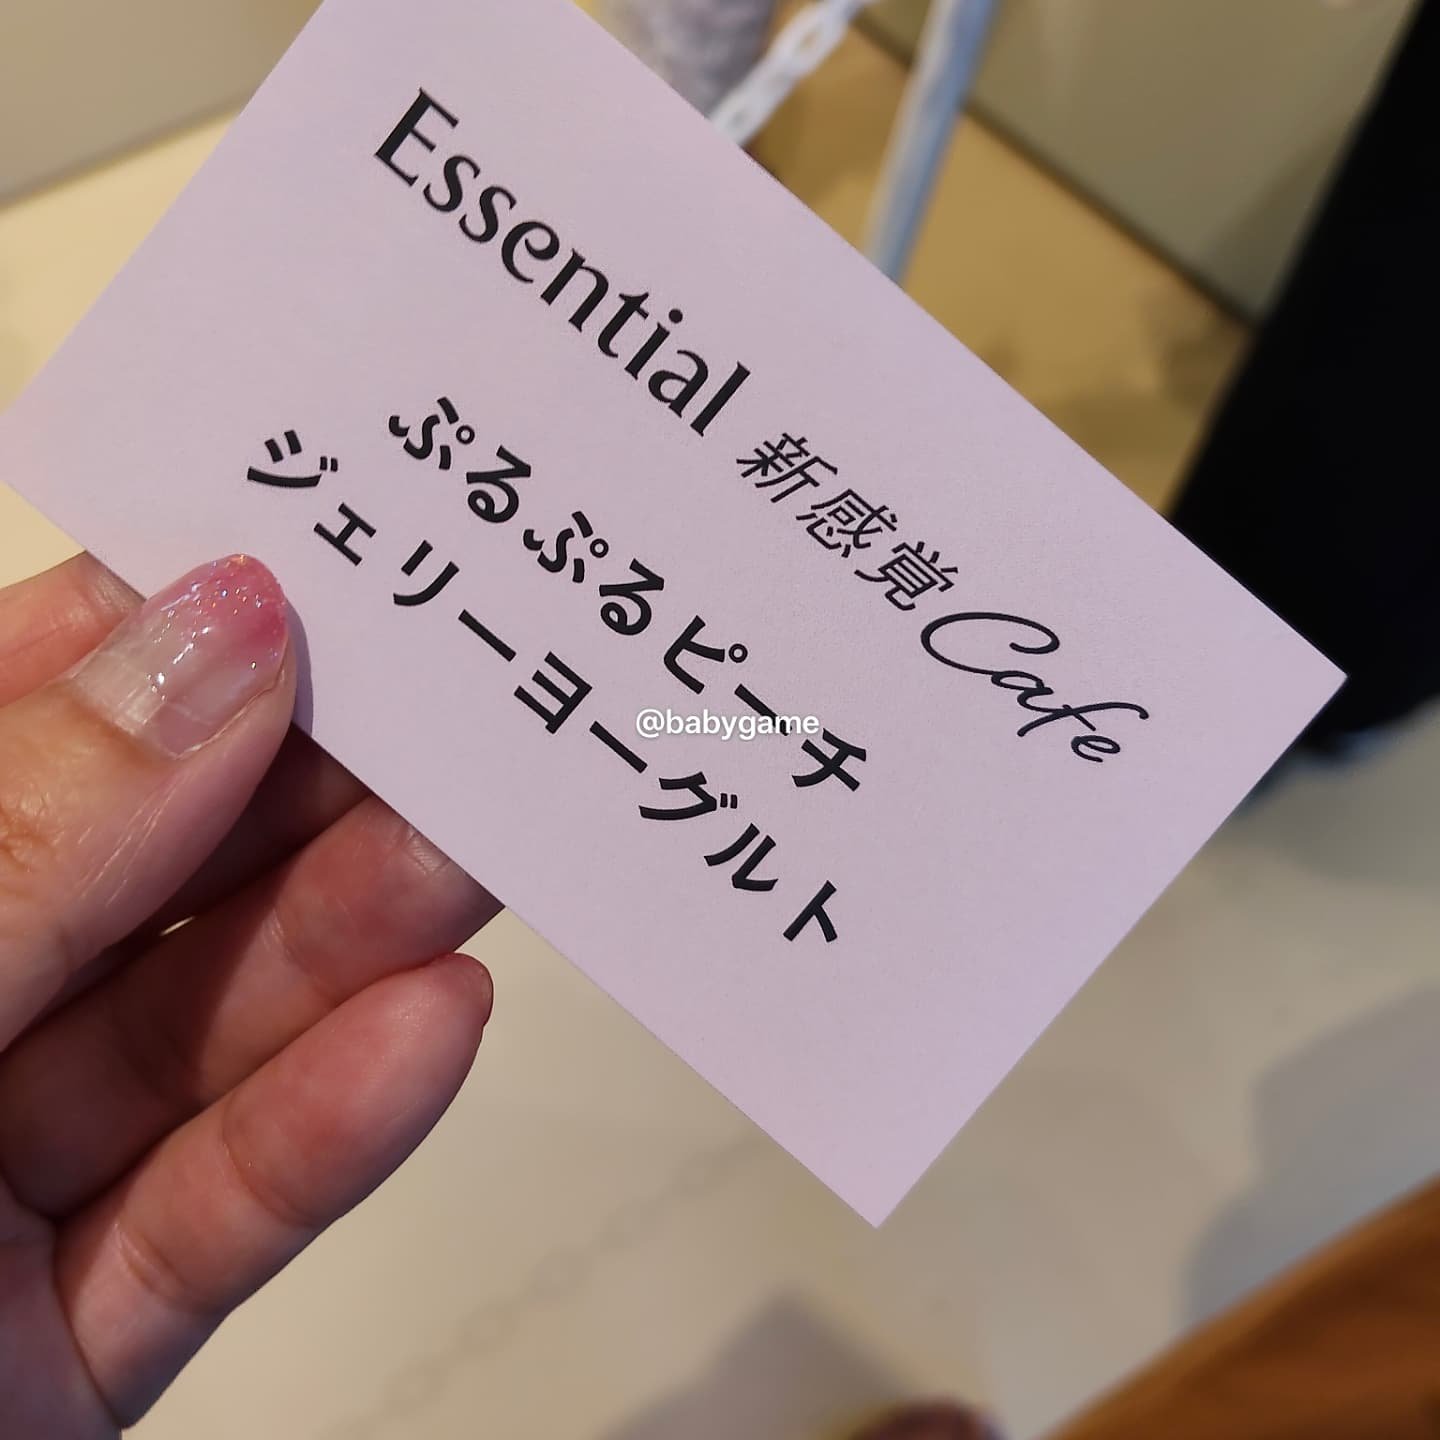 Essential 新感覚 Cafe
ぷるぷるピーチ
ジェリーヨーグルト
@babygame